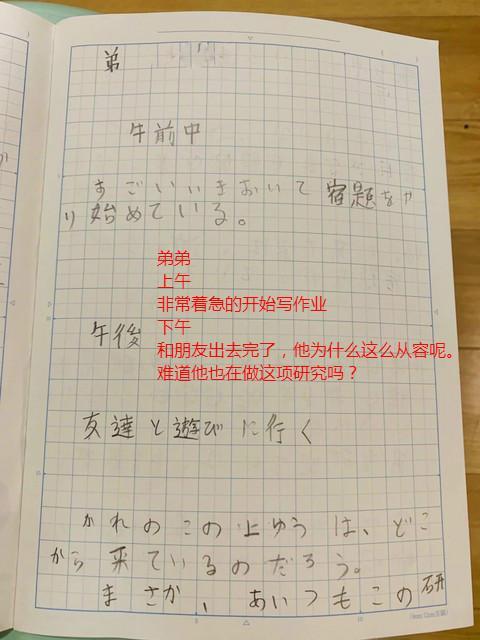 弟
午前中
すごいいきおいで宿題をや
り始めている。
弟弟
上午
非常着急的开始写作业
下午
和朋友出去完了，他为什么这么从容呢。
难道他也在做这项研究吗？
午後
友達と遊びに行く
かれのこの上ゆうは、どこ
から来ているのだろう。
まさか、あいつもこの研